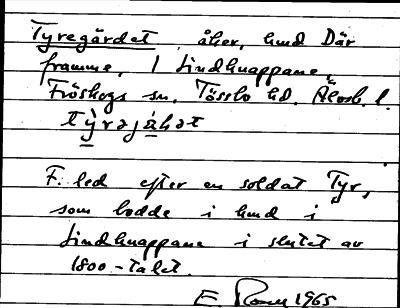 Tyregärdet, åker, hmd Där
framme, 1 Lindknappane,
Fröskogs sn. Tössbo hd. Älvsb. l.
tỳrəjáḷət
F. led efter en soldat Tyr,
som bodde i hmd i
Lindknappane i slutet av
1800-talet.
E. 1965